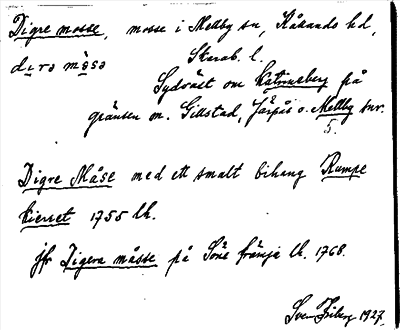 Digre mosse, mosse i Mellby sn, Kåkands hd,
dɩrə måsə Skarab. l.
Sydväst om Katrineberg på
gränsen m. Gillstad, Järpås o. Mellby snr.
5.
Digre Måse med ett smalt bihang Rumpe
kierret 1755 lk.
jfr Digera måsse på Söne lk. 1768.
Sven Friberg 1927.